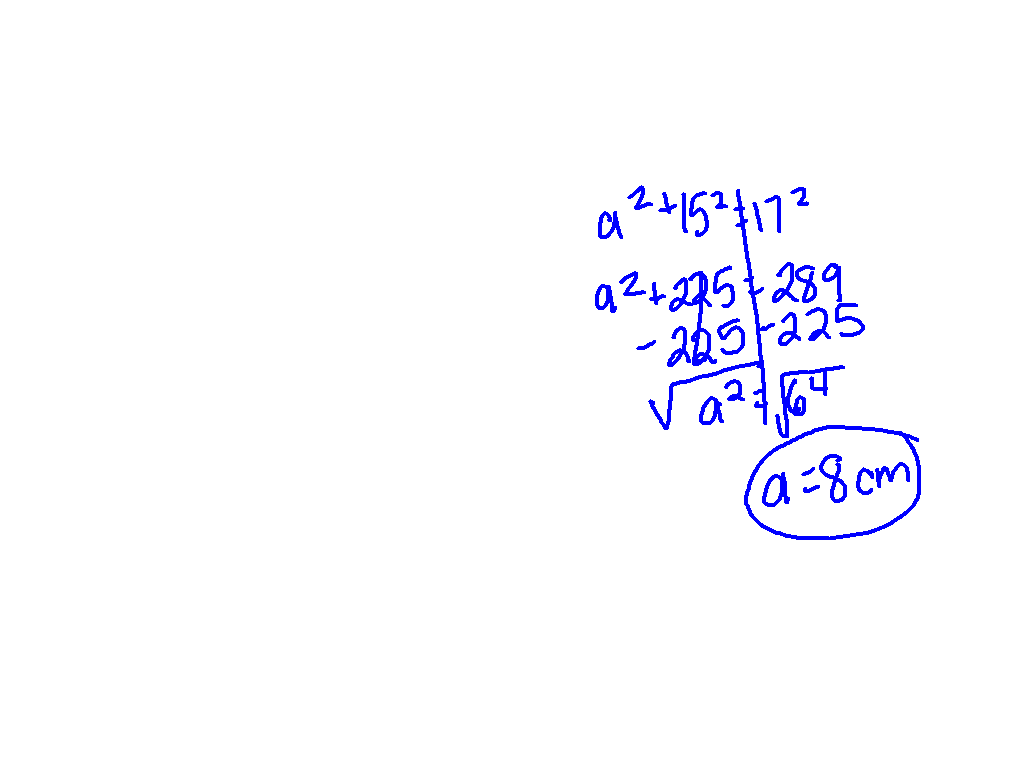 a²+15²=17²
a²+225=289
-225 -225
√a²=√64
a=8cm